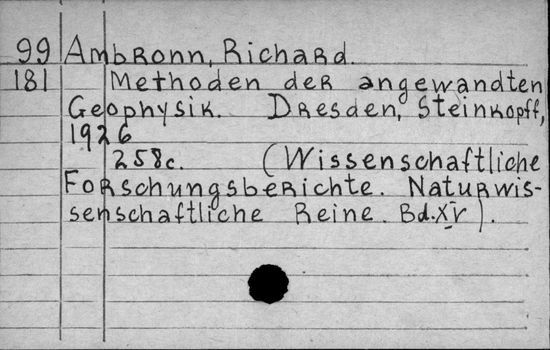 99 Ambronn, Richard.
181 Methoden der angewandten
Geophysik. Dresden, Steinkopff,
1926
258c. (Wissenschaftliche
Forschungsberichte. Naturwis-
senschaftliche Reine. Bd. XV).